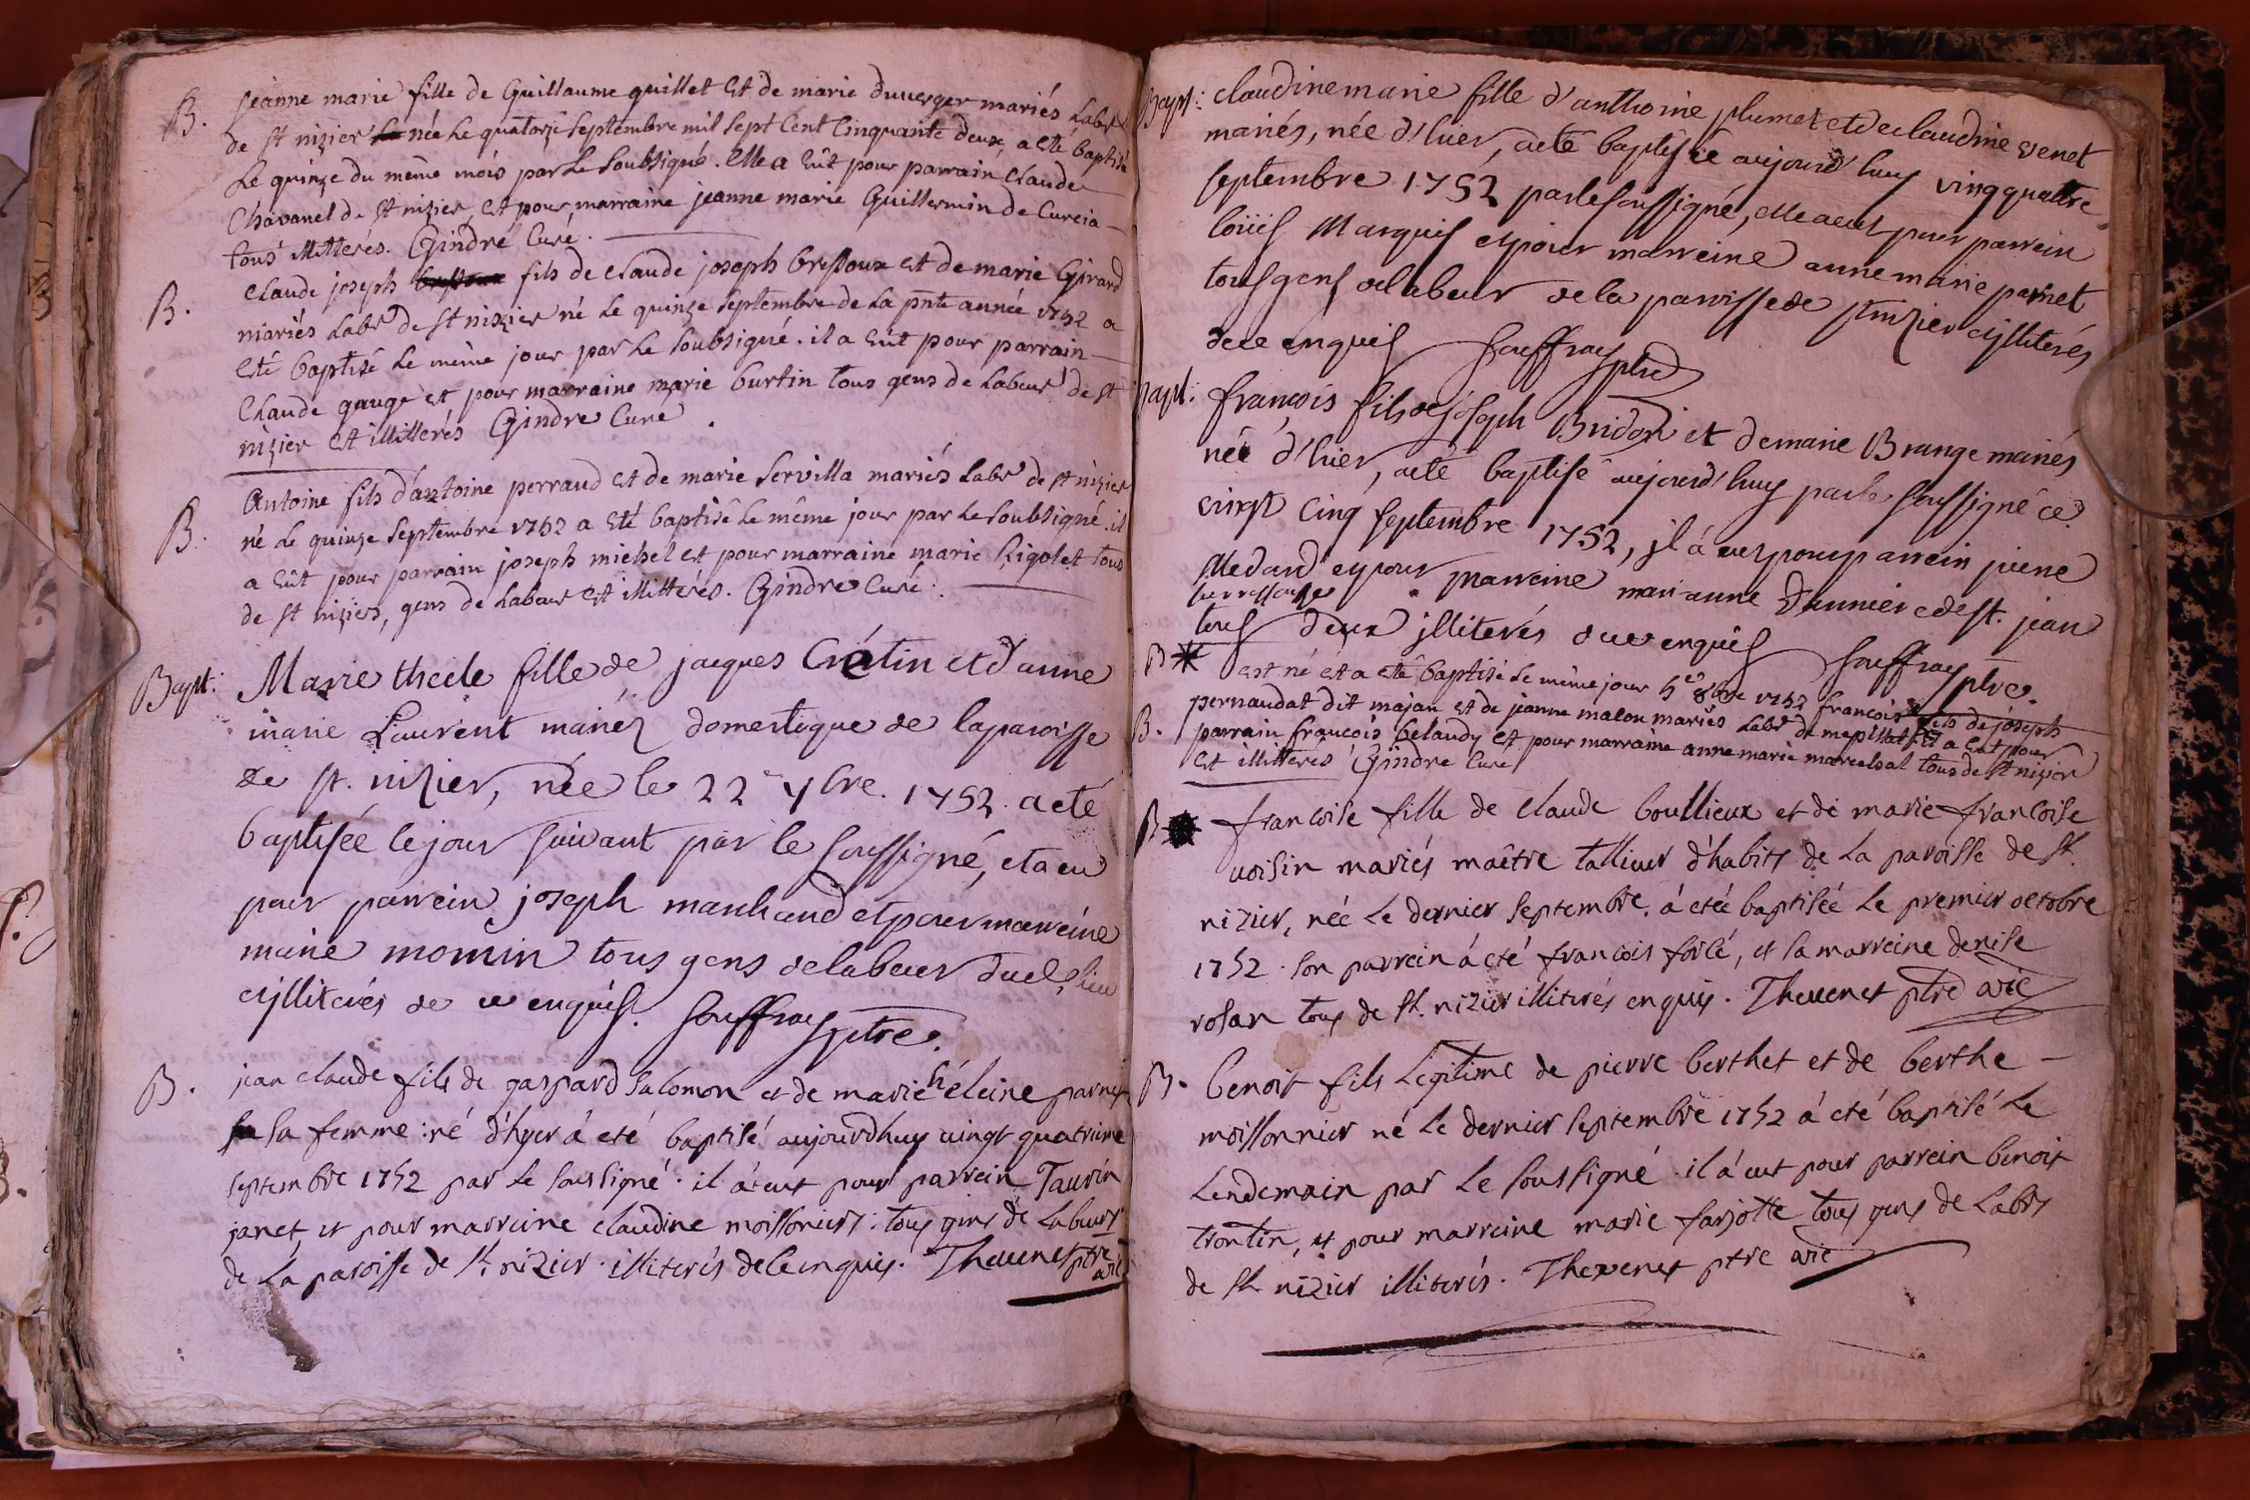 B. jeanne marie fille de Guillaume quillet et de marie duverger mariés Labrs
de st nizier née Le quatorze septembre mil sept Cent Cinquante deux, a eté baptisé
Le quinze du même mois par Le soubsigné. elle a eût pour parrain Claude
Chavanel de st nizier et pour marraine jeanne marie Guillermin de Curcia
tous illitterés. Gindre Curé.
B. Claude joseph fils de Claude joseph bressoux et de marie Girard
mariés Labrs de st nizier né Le quinze septembre de La pnte année 1752 a
eté baptisé Le même jour par Le soubsigné. il a eût pour parrain
Claude gauge et pour marraine marie burtin tous gens de Labeur de st
nizier et illitterés Gindre Curé.
B. Antoine fils d'antoine perraud et de marie servilla mariés Labrs de st nizier
né Le quinze septembre 1752 a eté baptisé Le même jour par Le soubsigné. il
a eût pour parrain joseph michel et pour marraine marie Rigolet tous
de st nizier, gens de Labeur et illitterés. Gindre Curé.
Bapt: Marie thecle fille de jacques Crétin et d'anne
marie Laurent mariéz domestique de la paroisse
de st. nizier, née le 22e 7bre. 1752. a eté
baptisée le jour suivant par le soussigné, et a eu
pour parrein joseph marchand et pour marreine
marie momin tous gens de labeur dud. lieu
et jlliterés de ce enquis. souffray ptre.
B. jean claude fils de gaspard salomon et de marie héleine parnet
sa femme: né d'hyer á eté baptisé aujourdhuy vingt quatrieme
septembre 1752 par Le soussigné. il á eut pour parrein Taurin
janet, et pour marreine claudine moissonier: tous gens de Labeurs
de La paroisse de st. nizier. illiterés de ce enquis. Thevenet ptre
vic
Bapt: claudine marie fille d'anthoine plumet et de claudine venet
mariés, née d'hier, a eté baptisée aujourd'huy vingquattre
septembre 1752 par le soussigné, elle a eut pour parrein
loüis Marquis et pour marreine anne marie parnet
tous gens de labeur de la parroisse de st nizier et jlliterés
de ce enquis souffray ptre
Bapt: françois fils de joseph Bridon et de marie Brange mariés
née d'hier, a eté baptisé aujourd'huy par le soussigné ce
vingt cinq septembre 1752, jl á eu pour parrein piere
Medard et pour marreine marianne Dannier de st. jean
tous deux jlliterés de ce enquis souffray ptre.
B est né et a eté baptisé Le même jour 5e 8bre 1752 francois fils de joseph
pernaudat dit majan et de jeanne malon mariés Labrs de mepillat, il a eut pour
B. parrain francois belaudy et pour marraine anne marie marechal tous de st nizier
et illitterés Gindre Curé
B francoise fille de claude boullieux et de marie francoise
voisin mariés maître tallieur d'habits de La paroisse de st.
nizier, née Le dernier septembre. á eteé baptisée Le premier octobre
1752. son parrein á eté francois forlé, et sa marreine denise
rosan tous de st. nizier illiterés enquis. Thevenet ptre vic
B. benoit fils Legitime de pierre berthet et de berthe
moissonnier né Le dernier septembre 1752 á eté baptisé Le
Lendemain par Le soussigné. il á eut pour parrein benoit
trontin, et pour marreine marie farjotte tous gens de Labrs
de st. nizier illiterés. Thevenet ptre vic